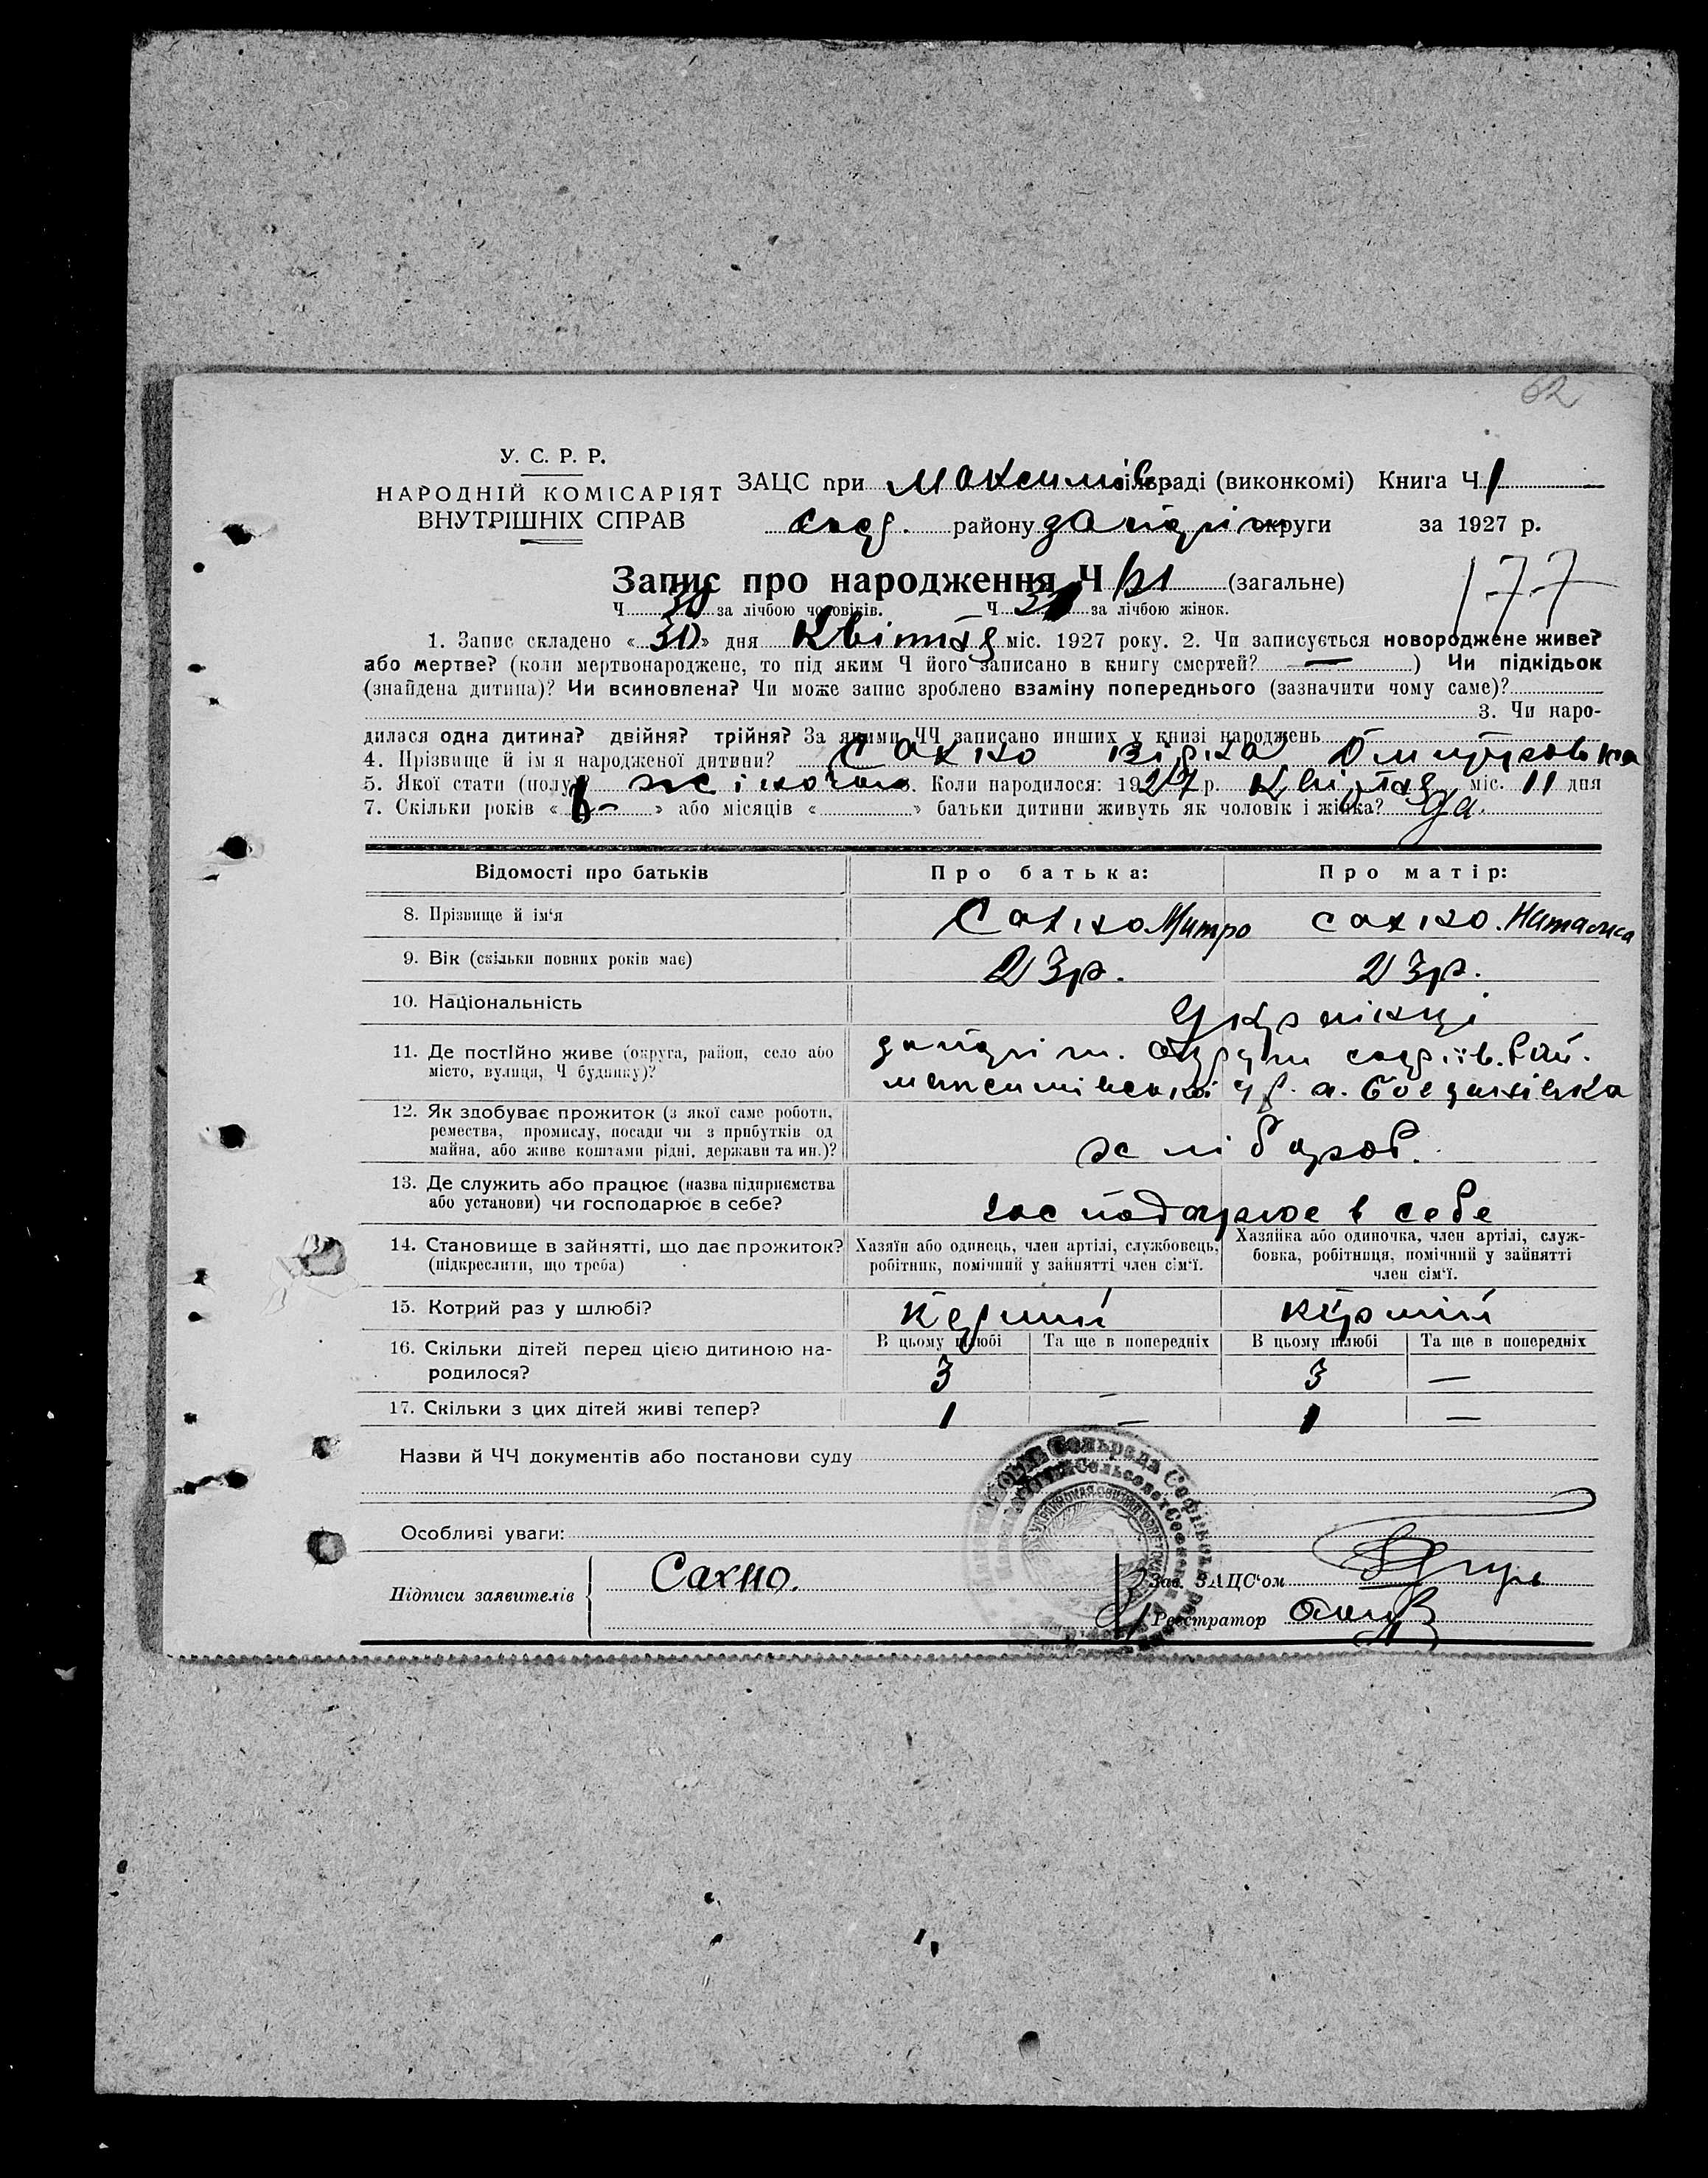 62
У. С. Р. Р.
НАРОДНІЙ КОМІСАРІЯТ
ВНУТРІШНІХ СПРАВ
ЗАЦС при Максимів. сільраді (виконкомі) Книга Ч 1
району округи за 1927 р.
Запис про народження Ч 61 (загальне)
177
Ч 30 за лічбою чоловіків. Ч 31 за лічбою жінок.
1. Запис складено « 30 » дня Квітня міс. 1927 року. 2. Чи записується новороджене живе?
або мертве? (коли мертвонароджене, то під яким Ч його записано в книгу смертей? — ) Чи підкідьок
(знайдена дитина)? Чи всиновлена? Чи може запис зроблено взаміну попереднього (зазначити чому саме)?
3. Чи наро-
дилася одна дитина? двійня? трійня? За якими ЧЧ записано инших у книзі народжень
4. Прізвище й ім'я народженої дитини? Сахно
5. Якої стати (полу)? жіночого 6. Коли народилося: 1927 р. Квітня міс. 11 дня
7. Скільки років « 6- » або місяців « » батьки дитини живуть як чоловік і жінка? да
Відомості про батьків Про батька: Про матір:
8. Прізвище й ім'я Сахно Митро Сахно. Наталка
9. Вік (скільки повних років має) 23р. 23р.
10. Національність Українці
11. Де постійно живе (округа, район, село або
місто, вулиця, Ч будинку)?
запоріж. округи софіїв. рай.
максимівської с/р. с. Богданівка
12. Як здобуває прожиток (з якої саме роботи,
ремества, промислу, посади чи з прибутків од
майна, або живе коштами рідні, держави та ин.)?
хлібороб.
13. Де служить або працює (назва підприємства
або установи) чи господарює в себе?
господарює в себе
14. Становище в зайнятті, що дає прожиток?
(підкреслити, що треба)
Хазяїн або одинець, член артілі, службовець,
робітник, помічний у зайнятті член сім'ї.
Хазяйка або одиночка, член артілі, служ-
бовка, робітниця, помічний у зайнятті
член сім'ї.
15. Котрий раз у шлюбі?
В цьому шлюбі Та ще в попередніх В цьому шлюбі Та ще в попередніх
16. Скільки дітей перед цією дитиною на-
родилося?
3 3 —
17. Скільки з цих дітей живі тепер? 1 — 1 —
Назви й ЧЧ документів або постанови суду
Особливі уваги:
Підписи заявителів Сахно.
Зав. ЗАЦС'ом
Реєстратор